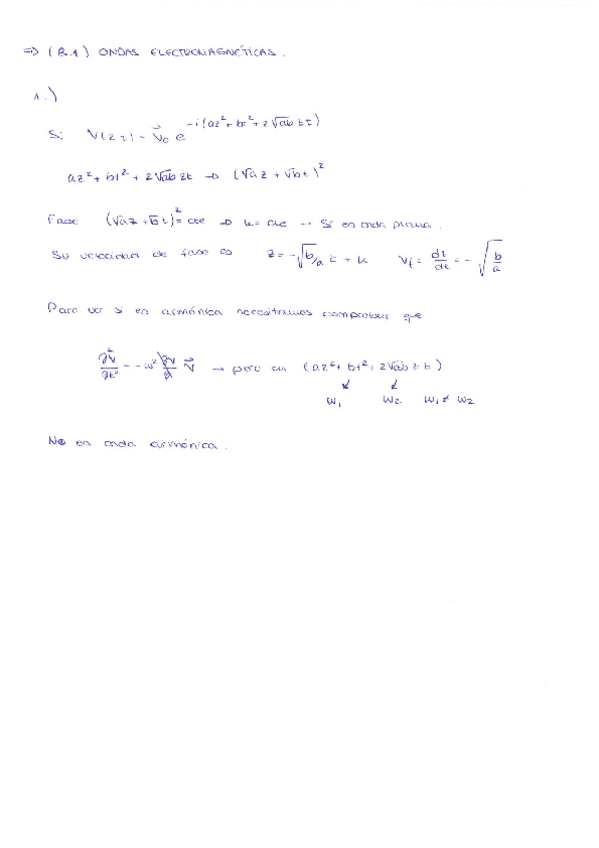 => (B.1) ONDAS ELECTROMAGNÉTICAS.
1.)
Si V(z t) = V⃗₀ e^{-i(az²+bt²+2√ab zt)}
az² + bt² + 2√ab zt → (√a z + √b t)²
Fase (√a z + √b t)² = cte → k = cte ... Sí es onda plana.
Su velocidad de fase es z = -√b/a t + k V_f = dz/dt = -√b/a
Para ver si es armónica necesitamos comprobar que
∂²V⃗/∂t² = -ω² V⃗ → pero en (az² + bt² + 2√ab z t)
ω₁ ω₂ ω₁ ≠ ω₂
No es onda armónica.